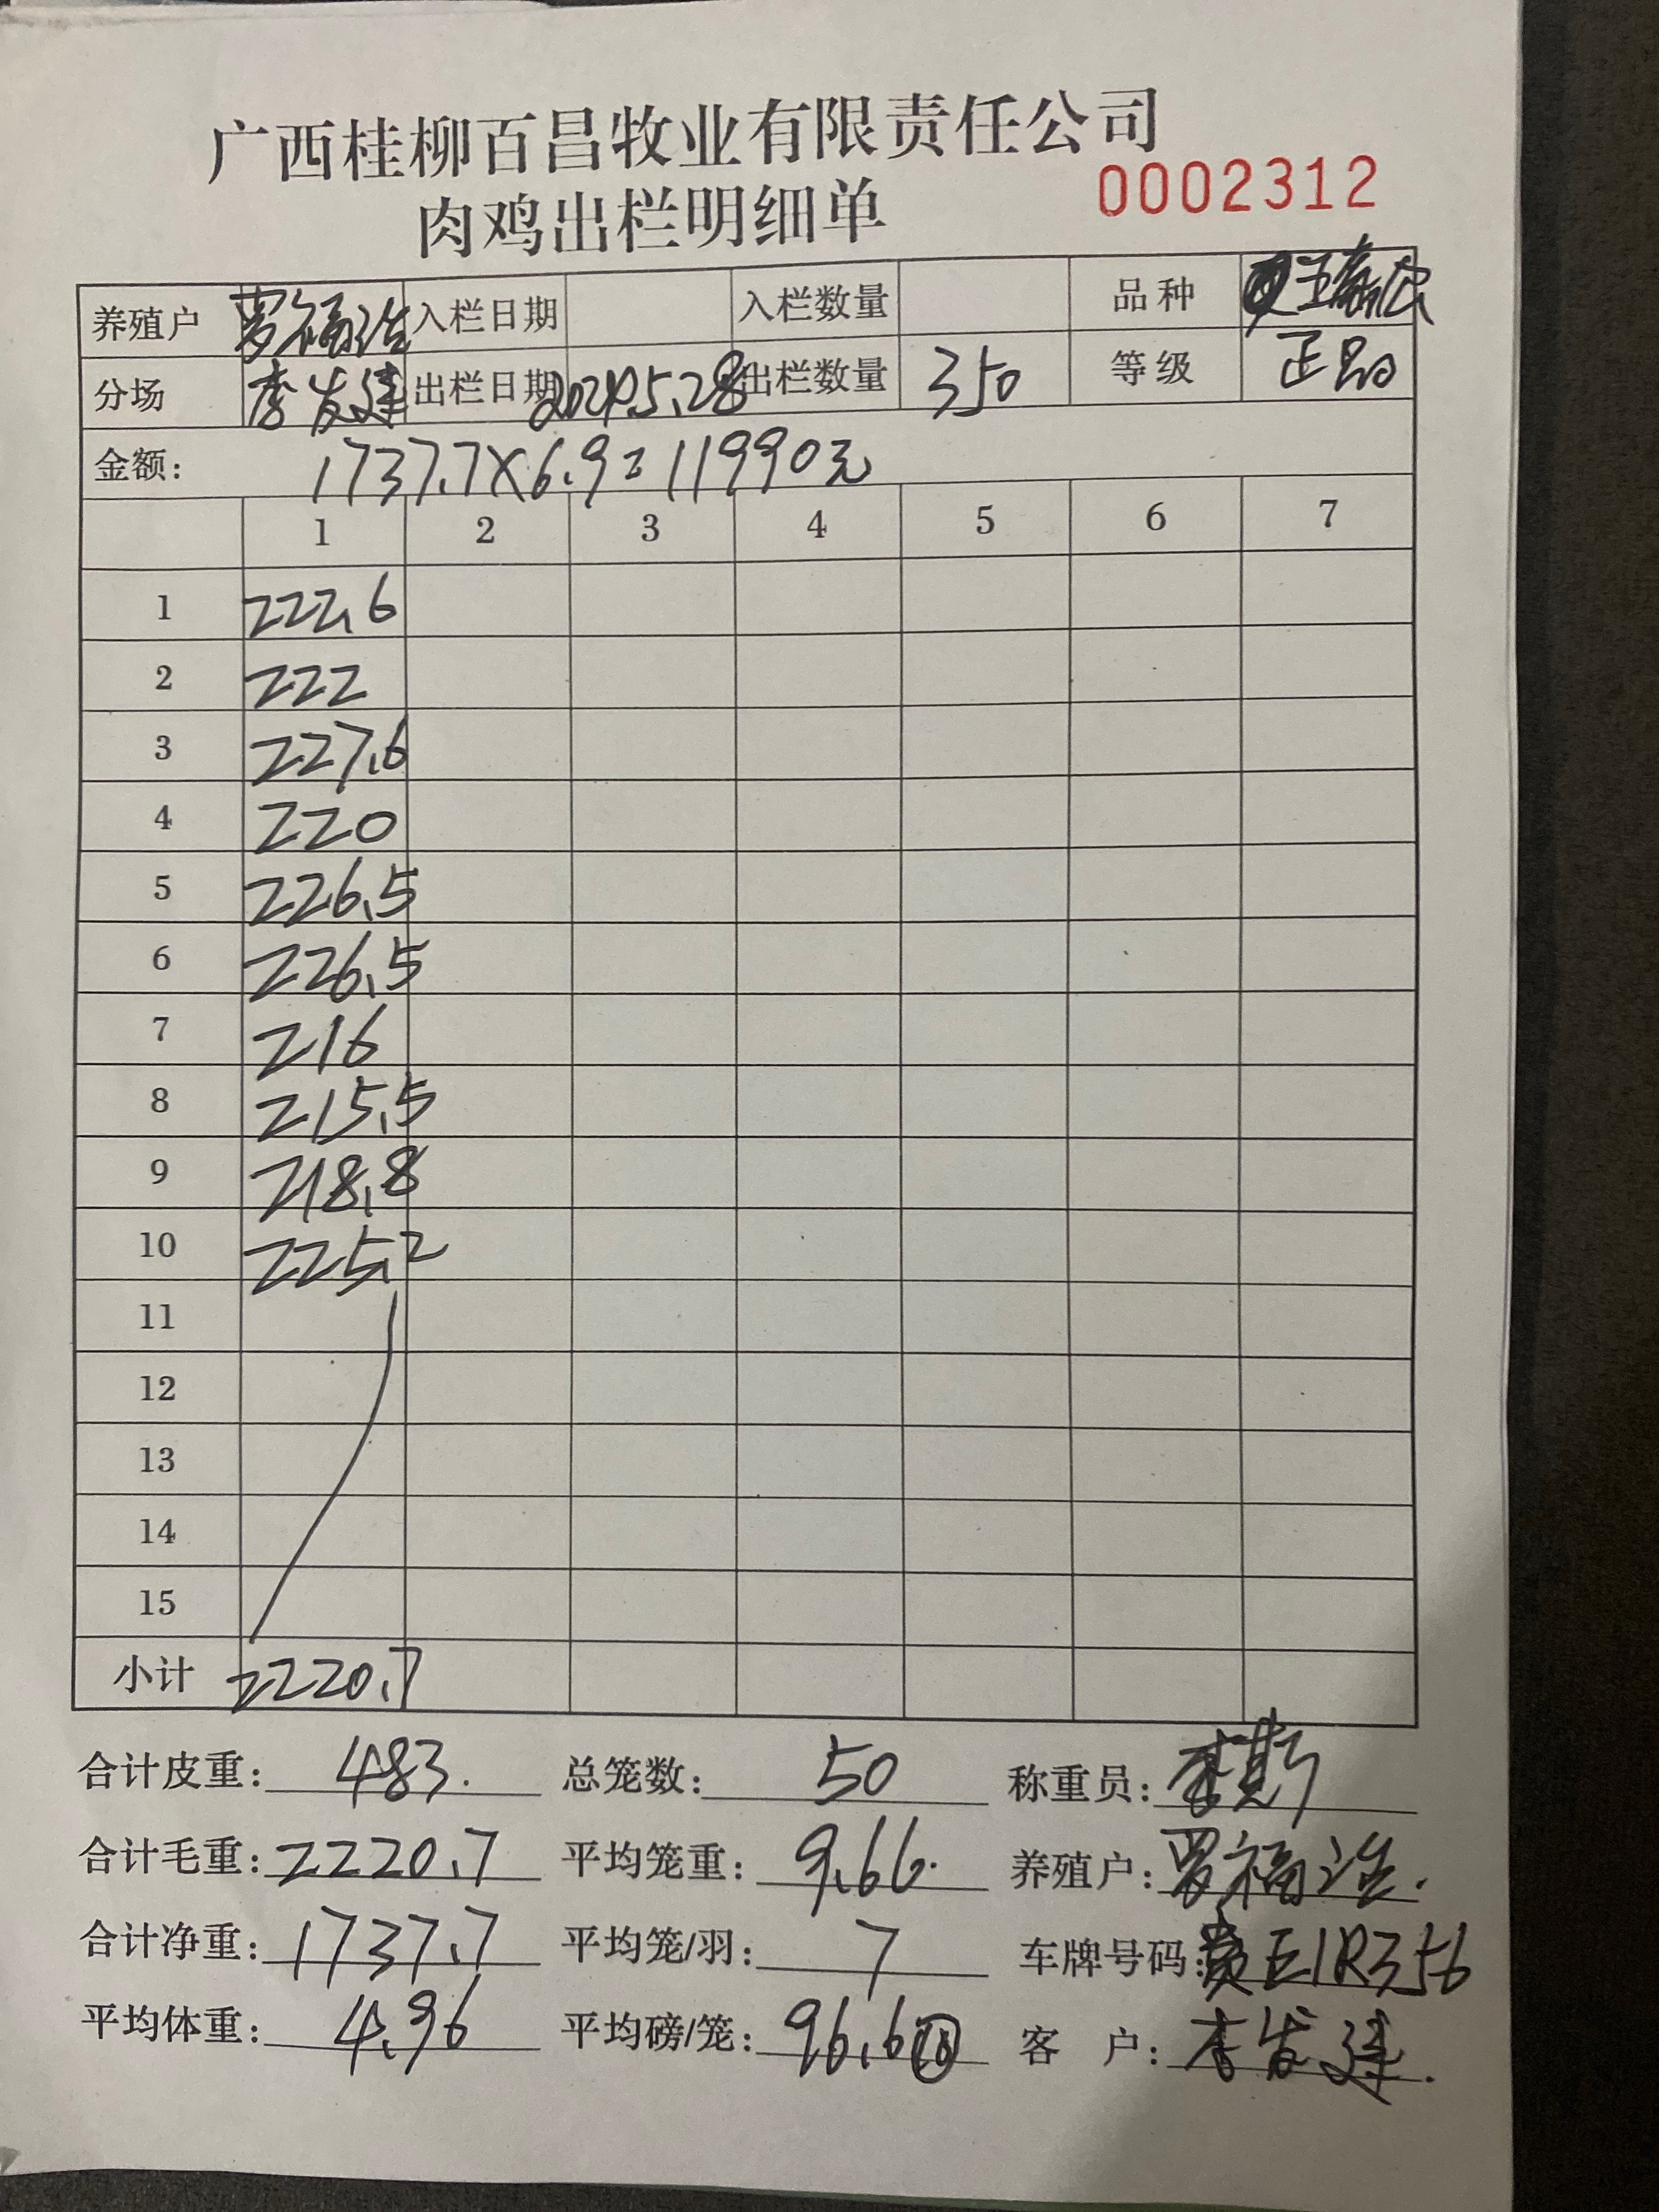 广西桂柳百昌牧业有限责任公司
肉鸡出栏明细单 0002312
养殖户 罗福 入栏日期 入栏数量 品种
分场 李发建 出栏日期 2024.5.28 出栏数量 350 等级 正品
金额: 1737.7×6.9=11990元
1 2 3 4 5 6 7
1 222.6
2 222
3 227.6
4 220
5 226.5
6 226.5
7 216
8 215.5
9 218.8
10 225.2
11
12
13
14
15
小计 2220.7
合计皮重: 483. 总笼数: 50 称重员:
合计毛重: 2220.7 平均笼重: 9.66. 养殖户: 罗福
合计净重: 1737.7 平均笼/羽: 7 车牌号码: 贵E1R356
平均体重: 4.96 平均磅/笼: 96.6 10 客 户: 李发建.